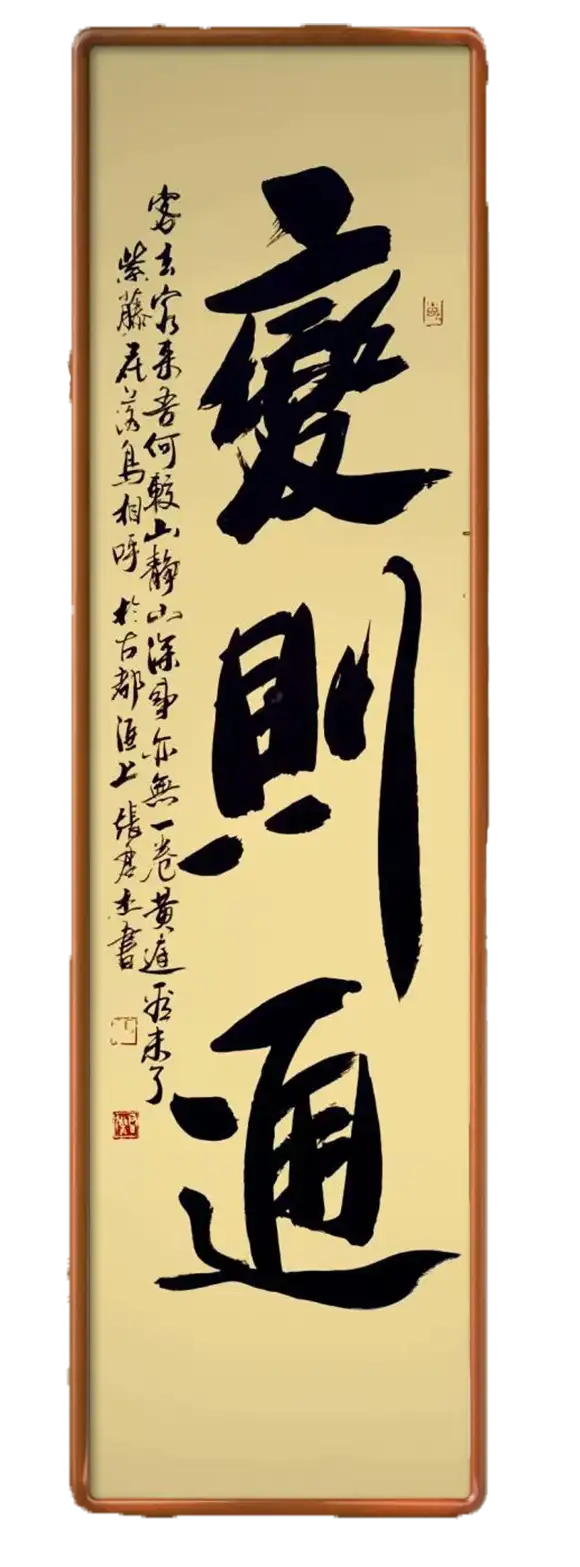 變則通
客去客來吾何較山靜山深事亦無一卷黃庭看未了
紫藤花落鳥相呼於古都汴上張君杰書